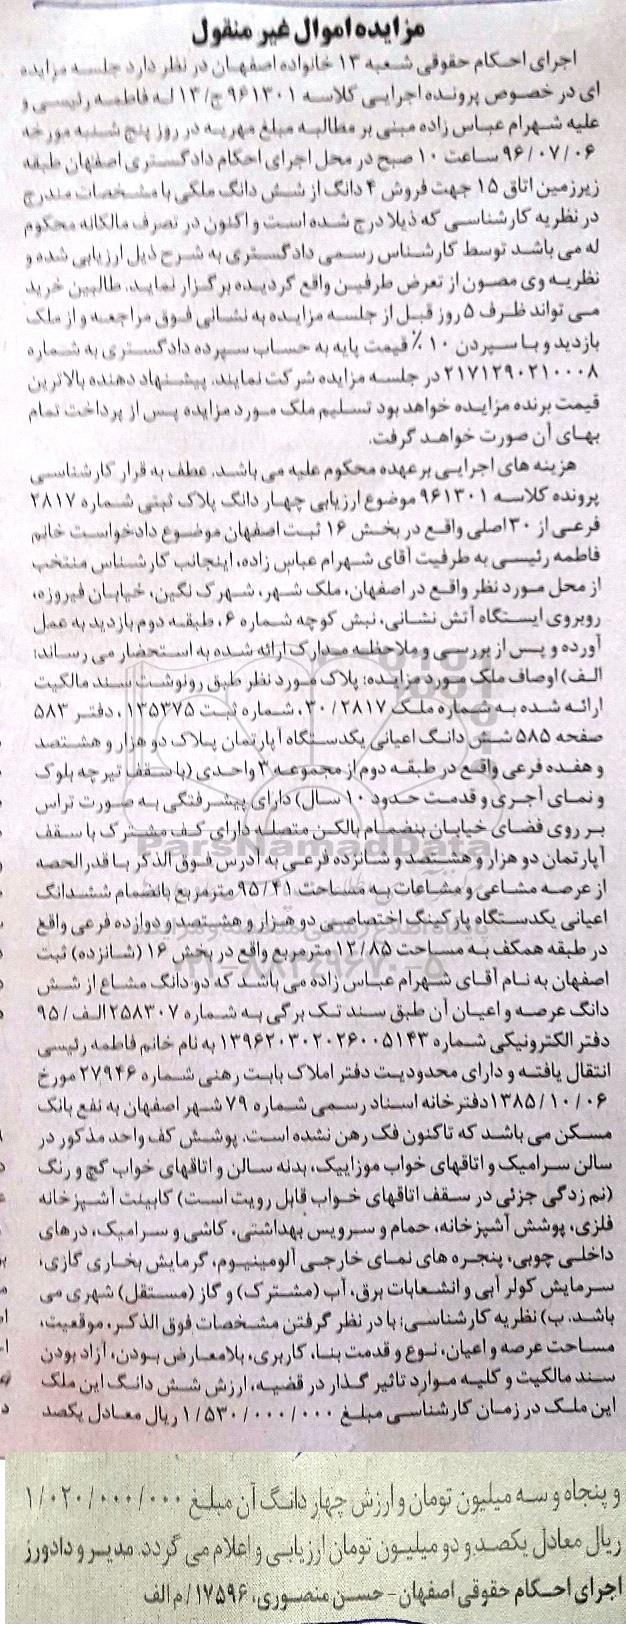 مزایده اموال غیر منقول
اجرای احکام حقوقی شعبه ۱۳ خانواده اصفهان در نظر دارد جلسه مزایده
ای در خصوص پرونده اجرایی کلاسه ۹۶۱۳۰۱ ج/۱۳ له فاطمه رئیسی و
علیه شهرام عباس زاده مبنی بر مطالبه مبلغ مهریه در روز پنج شنبه مورخه
۹۶/۰۷/۰۶ ساعت ۱۰ صبح در محل اجرای احکام دادگستری اصفهان طبقه
زیرزمین اتاق ۱۵ جهت فروش ۴ دانگ از شش دانگ ملکی با مشخصات مندرج
در نظریه کارشناسی که ذیلا درج شده است و اکنون در تصرف مالکانه محکوم
له می باشد توسط کارشناس رسمی دادگستری به شرح ذیل ارزیابی شده و
نظریه وی مصون از تعرض طرفین واقع گردیده برگزار نماید. طالبین خرید
می تواند ظرف ۵ روز قبل از جلسه مزایده به نشانی فوق مراجعه و از ملک
بازدید و با سپردن ۱۰٪ قیمت پایه به حساب سپرده دادگستری به شماره
۲۱۷۱۲۹۰۲۱۰۰۰۸ در جلسه مزایده شرکت نمایند. پیشنهاد دهنده بالاترین
قیمت برنده مزایده خواهد بود تسلیم ملک مورد مزایده پس از پرداخت تمام
بهای آن صورت خواهد گرفت.
هزینه های اجرایی بر عهده محکوم علیه می باشد. عطف به قرار کارشناسی
پرونده کلاسه ۹۶۱۳۰۱ موضوع ارزیابی چهار دانگ پلاک ثبتی شماره ۲۸۱۷
فرعی از ۳۰ اصلی واقع در بخش ۱۶ ثبت اصفهان موضوع دادخواست خانم
فاطمه رئیسی به طرفیت آقای شهرام عباس زاده، اینجانب کارشناس منتخب
از محل مورد نظر واقع در اصفهان، ملک شهر، شهرک نگین، خیابان فیروزه،
روبروی ایستگاه آتش نشانی، نبش کوچه شماره ۶، طبقه دوم بازدید به عمل
آورده و پس از بررسی و ملاحظه مدارک ارائه شده به استحضار می رساند:
الف) اوصاف ملک مورد مزایده: پلاک مورد نظر طبق رونوشت سند مالکیت
ارائه شده به شماره ملک ۳۰/۲۸۱۷، شماره ثبت ۱۳۵۳۷۵، دفتر ۵۸۳
صفحه ۵۸۵ شش دانگ اعیانی یکدستگاه آپارتمان پلاک دو هزار و هشتصد
و هفده فرعی واقع در طبقه دوم از مجموعه ۳ واحدی (با سقف تیرچه بلوک
و نمای آجری و قدمت حدود ۱۰ سال) دارای پیشرفتگی به صورت تراس
بر روی فضای خیابان بنضمام بالکن متصله دارای کف مشترک با سقف
آپارتمان دو هزار و هشتصد و شانزده فرعی به آدرس فوق الذکر با قدرالحصه
از عرصه مشاعی و مشاعات به مساحت ۹۵/۴۱ مترمربع بانضمام ششدانگ
اعیانی یکدستگاه پارکینگ اختصاصی دو هزار و هشتصد و دوازده فرعی واقع
در طبقه همکف به مساحت ۱۲/۸۵ مترمربع واقع در بخش ۱۶ (شانزده) ثبت
اصفهان به نام آقای شهرام عباس زاده می باشد که دو دانگ مشاع از شش
دانگ عرصه و اعیان آن طبق سند تک برگی به شماره ۲۵۸۳۰۷ الف/۹۵
دفتر الکترونیکی شماره ۱۳۹۶۲۰۳۰۲۰۲۶۰۰۵۱۴۳ به نام خانم فاطمه رئیسی
انتقال یافته و دارای محدودیت دفتر املاک بابت رهنی شماره ۲۷۹۴۶ مورخ
۱۳۸۵/۱۰/۰۶ دفترخانه اسناد رسمی شماره ۷۹ شهر اصفهان به نفع بانک
مسکن می باشد که تاکنون فک رهن نشده است. پوشش کف واحد مذکور در
سالن سرامیک و اتاقهای خواب موزاییک، بدنه سالن و اتاقهای خواب گچ و رنگ
(نم زدگی جزئی در سقف اتاقهای خواب قابل رویت است) کابینت آشپزخانه
فلزی، پوشش آشپزخانه، حمام و سرویس بهداشتی، کاشی و سرامیک، درهای
داخلی چوبی، پنجره های نمای خارجی آلومینیوم، گرمایش بخاری گازی،
سرمایش کولر آبی و انشعابات برق، آب (مشترک) و گاز (مستقل) شهری می
باشد. ب) نظریه کارشناسی: با در نظر گرفتن مشخصات فوق الذکر، موقعیت،
مساحت عرصه و اعیان، نوع و قدمت بنا، کاربری، بلامعارض بودن، آزاد بودن
سند مالکیت و کلیه موارد تاثیر گذار در قضیه، ارزش شش دانگ این ملک
این ملک در زمان کارشناسی مبلغ ۱/۵۳۰/۰۰۰/۰۰۰ ریال معادل یکصد
و پنجاه و سه میلیون تومان و ارزش چهار دانگ آن مبلغ ۱/۰۲۰/۰۰۰/۰۰۰
ریال معادل یکصد و دو میلیون تومان ارزیابی و اعلام می گردد. مدیر و دادورز
اجرای احکام حقوقی اصفهان- حسن منصوری، ۱۷۵۹۶/م الف
ParsNamadData